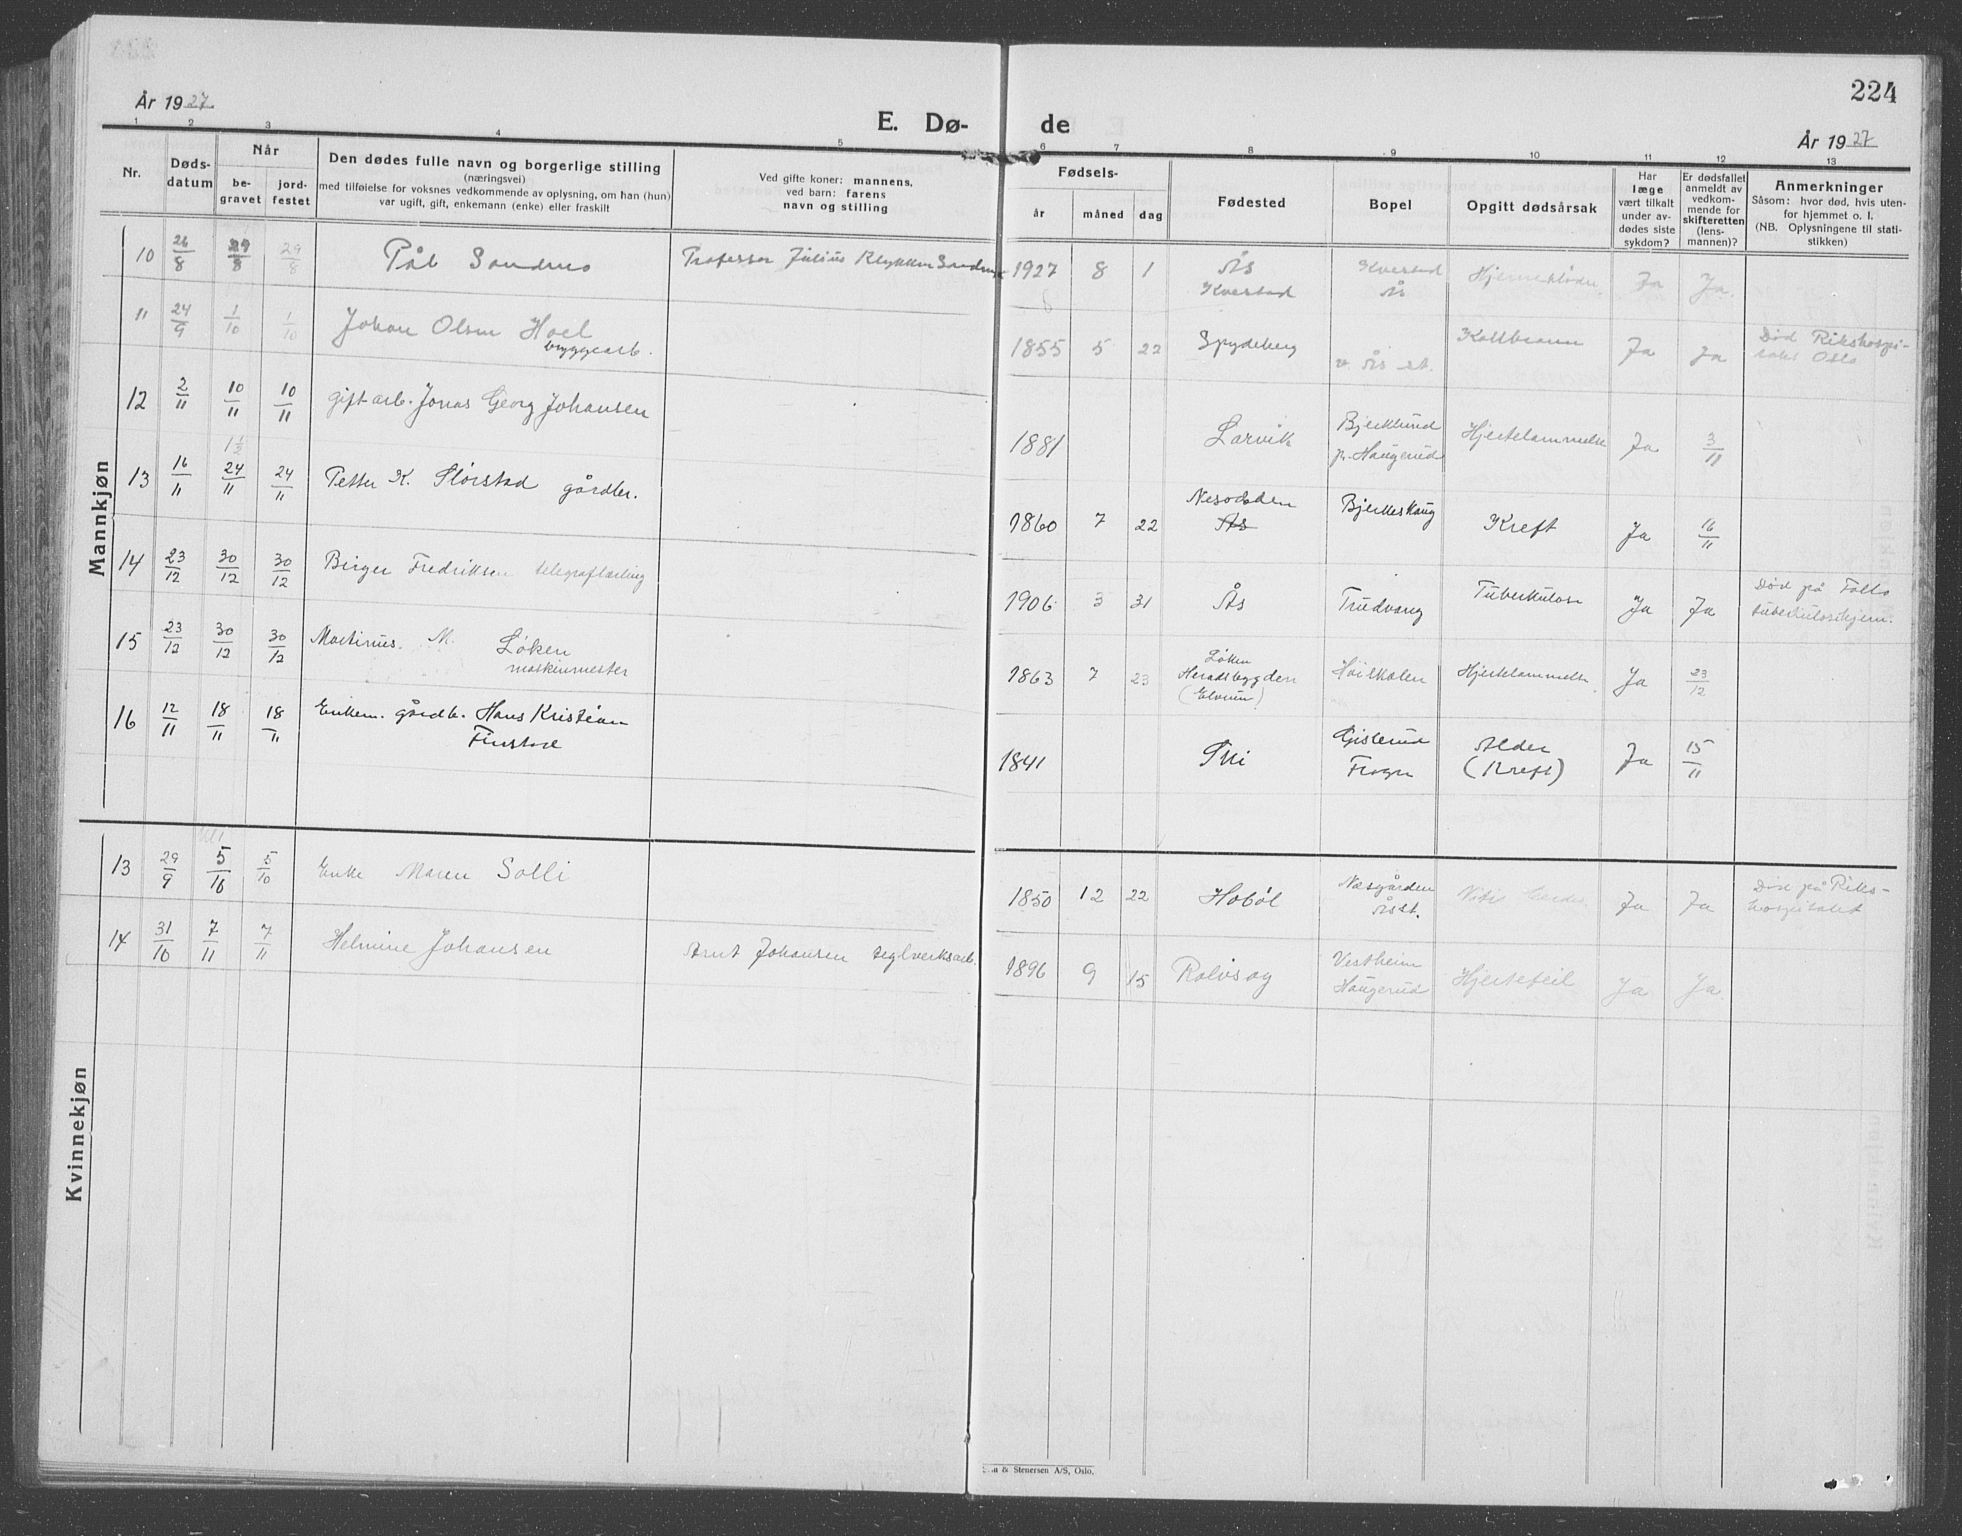 224
År 1927
E. Dø-
de
År 1927
1 2 3 4 5 6 7 8 9 10 11 12 13
Nr.
Døds-
datum
Når
be-
gravet
jord-
festet
Den dødes fulle navn og borgerlige stilling
(næringsvei)
med tilføielse for voksnes vedkommende av oplysning, om han (hun)
var ugift, gift, enkemann (enke) eller fraskilt
Ved gifte koner: mannens,
ved barn: farens
navn og stilling
Fødsels-
år måned dag
Fødested
Bopel
Opgitt dødsårsak
Har
læge
vært tilkalt
under av-
dødes siste
sykdom?
Er dødsfallet
anmeldt av
vedkom-
mende for
skifteretten
(lens-
mannen)?
Anmerkninger
Såsom: hvor død, hvis uten-
for hjemmet o. l.
(NB. Oplysningene til stati-
stikken)
Mannkjøn
10 26/8 29/8 29/8 Pål Sandmo Professor Julius 1927 8 1 Ås Kvestad Kvestad Ås Ja Ja
11 24/9 1/10 1/10 Johan Olsen Hoel
bryggearb. 1855 5 22 Spydeberg v. Ås st. Koldbrann Ja Ja Død Rikshospi-
talet Oslo
12 2/11 10/11 10/11 gift arb. Jonas Georg Johansen 1881 Larvik Bjerklund
pr. Haugerud Hjertelammelse Ja 3/11
13 16/11 24/11 24/11 Petter K. Storstad gårdbr. 1860 7 22 Nesodden
Ås Bjerkeskaug Kreft Ja 16/11
14 23/12 30/12 30/12 Birger Fredriksen telegraflærling 1906 3 31 Ås Trudvang Tuberkulose Ja Ja Død på Follo
tuberkulosehjem.
15 23/12 30/12 30/12 Martinus. M. Løken
maskinmester 1863 7 23 Løken
Heradsbygden
(Elverum) Høiskolen Hjertelammelse Ja 23/12
16 12/11 18/11 18/11 Enkem. gårdb. Hans Kristian
Finstad 1841 Ski Gislerud
Frogn Alder
(Kreft) Ja 15/11
Kvinnekjøn
13 29/9 5/10 5/10 Enke Maren Solli 1850 12 22 Hobøl Næsgården
Ås st. Ja Ja Død på Riks-
hospitalet
14 31/10 7/11 7/11 Helmine Johansen Arnt Johansen teglverksarb. 1896 9 15 Rolvsøy Vestheim
Haugerud Hjertefeil Ja Ja
& Stenersen A/S, Oslo.